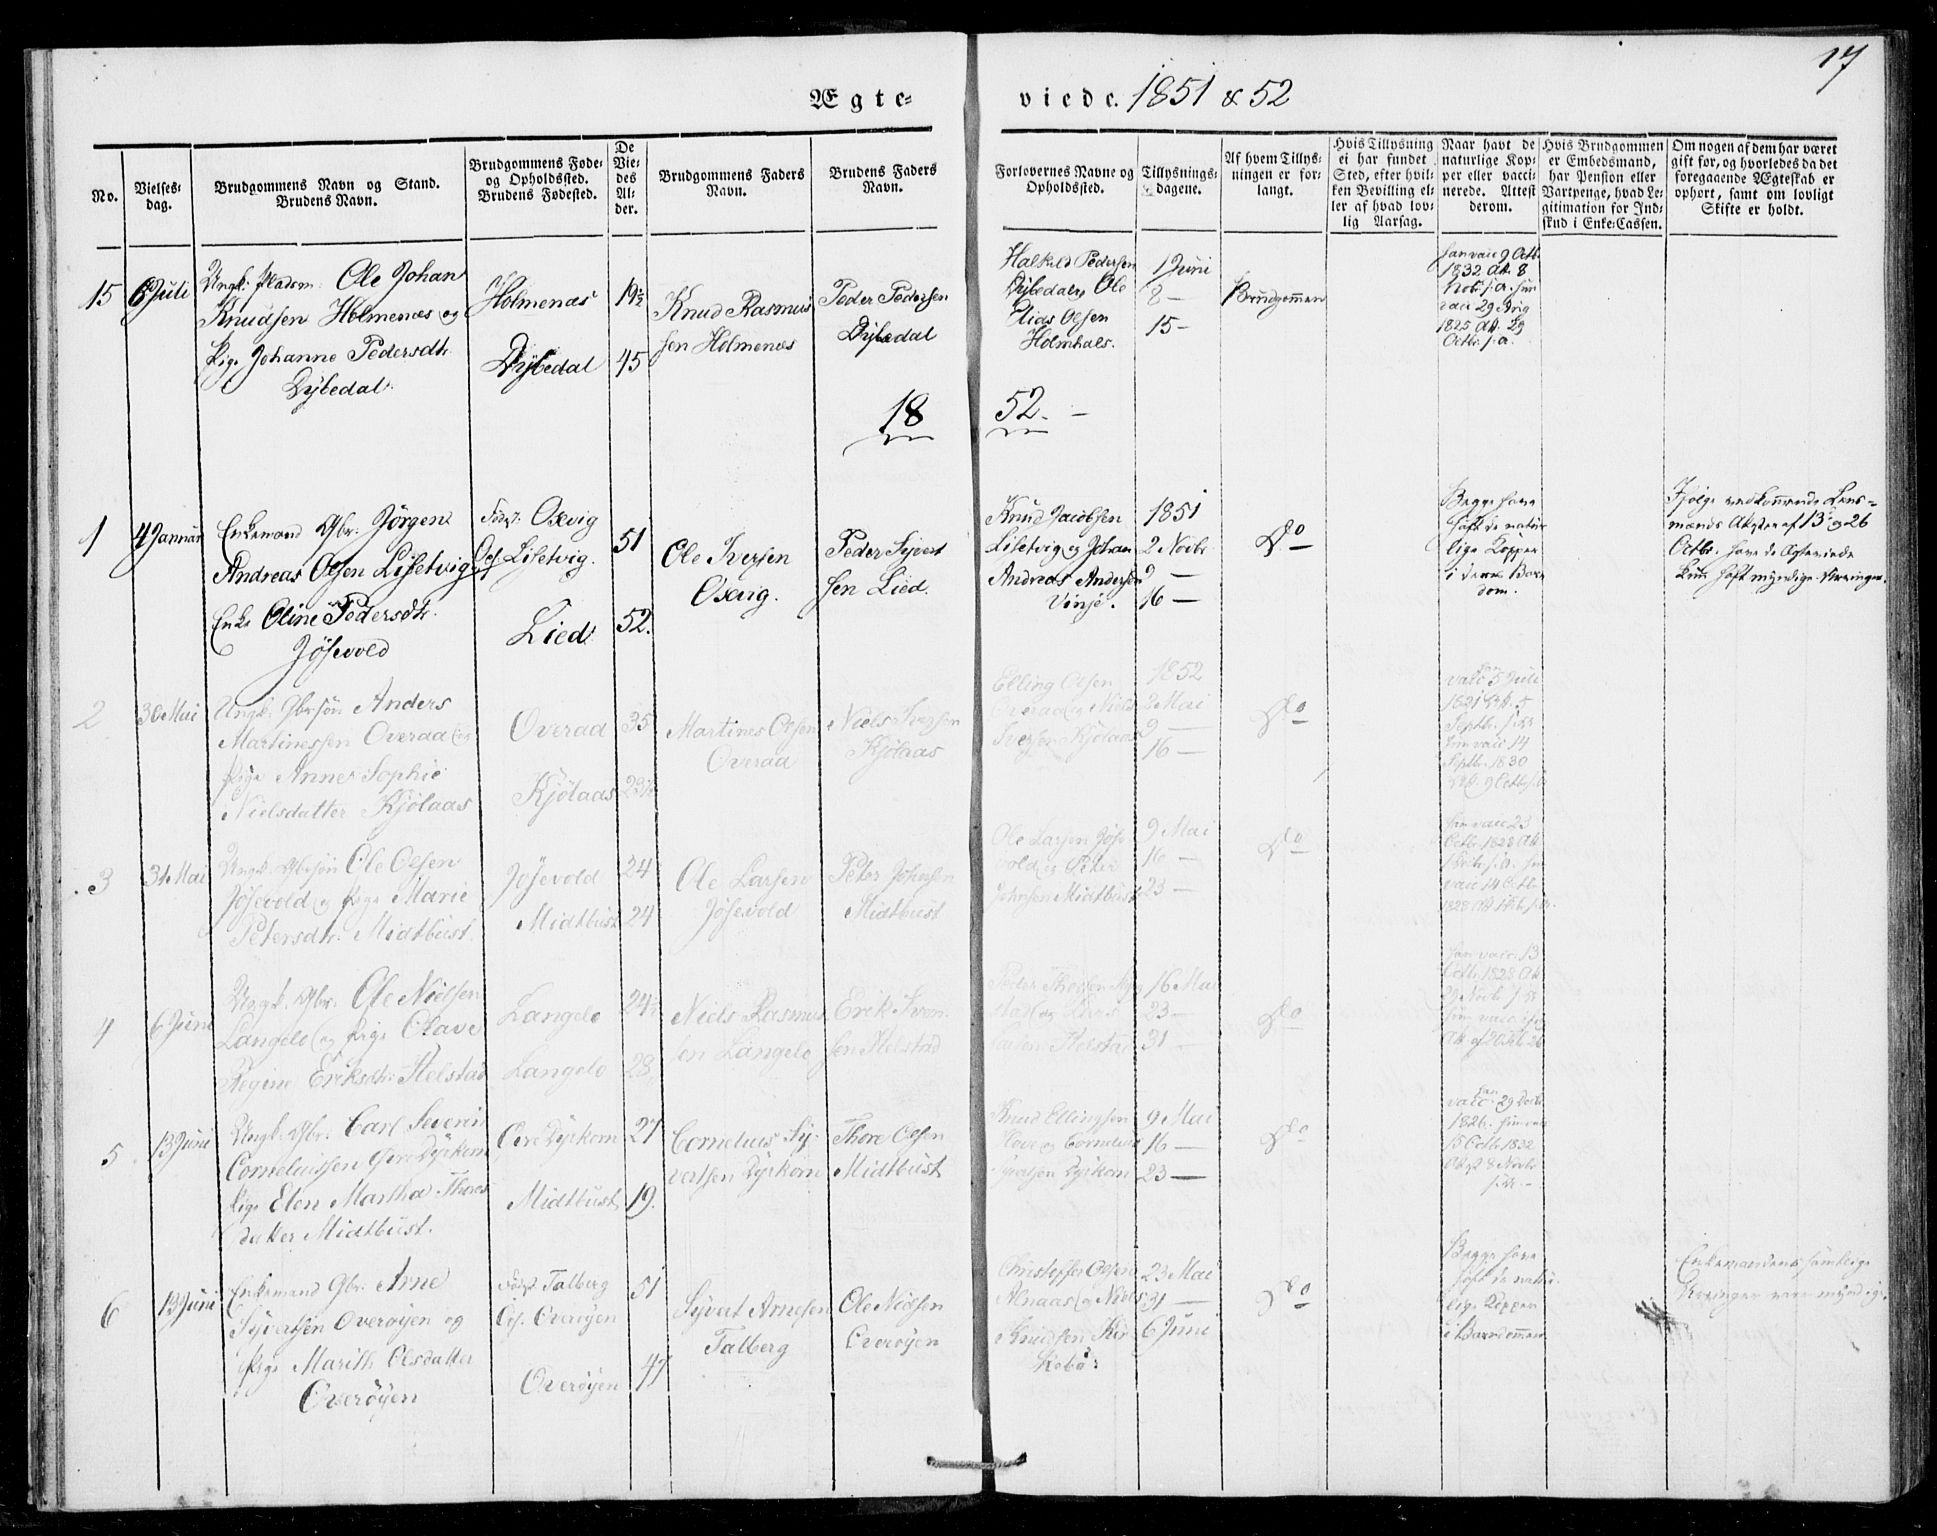 17
Ægte-
viede. 1851 & 52
No.
Vielses-
dag.
Brudgommens Navn og Stand.
Brudens Navn.
Brudgommens Føde-
og Opholdssted.
Brudens Fødested.
De
Vie-
des
Al-
der.
Brudgommens Faders
Navn.
Brudens Faders
Navn.
Forlovernes Navne og
Opholdssted.
Tillysnings-
dagene.
Af hvem Tillys-
ningen er for-
langt.
Hvis Tillysning
ei har fundet
Sted, efter hvil-
ken Bevilling el-
ler af hvad lov-
lig Aarsag.
Naar havt de
naturlige Kop-
per eller vacci-
nerede. Attest
derom.
Hvis Brudgommen
er Embedsmand,
har Pension eller
Vartpenge, hvad Le-
gitimation for Ind-
skud i Enke-Cassen.
Om nogen af dem har været
gift før, og hvorledes da det
foregaaende Ægteskab er
ophørt, samt om lovligt
Skifte er holdt.
15
6 Juli
Ungk. Pladsm. Ole Johan
Knudsen Holmenæs og
Pige Johanne Pedersdtr.
Dybedal.
Holmenæs
Dybedal
19½
45
Knud Rasmus
sen Holmenæs
Peder Pedersen
Dybedal
Halkild Pedersen
Dybedal, Ole
Elias Olsen
Holmhals.
1 Juni
8 —
15 —
Brudgommen
han vacc 9 Octb.
1832 Att. 8
Novb. s. A. hun
vacc 29 Aug
1825 Att. 29
Octbr. s. a.
18
52. —
1
4 Januar
Enkemand Gbr. Jørgen
Andreas Olsen Lisetvig
Enke Oline Pedersdtr.
Jøsevold
Født: Oxvig
Op. Lisetvig.
Lied
51
52.
Ole Iversen
Oxvig.
Peder Sjvert
sen Lied.
Knud Jacobsen
Lisetvig og Johan
Andreas Andersen
Vinje.
1851
2 Novbr
9 —
16 —
Do
Begge have
havt de natur
lige Kopper
i deres Barn
dom.
Ifølge vedkommende Lens-
mænds Attester af 13 og 26
Octbr. have de Ægteviede
kun havt myndige Arvinger.
2
30 Mai
Ungk. Gbrsøn Anders
Martinessen Overaa og
Pige Anne Sophie
Nielsdatter Kjølaas
Overaa
Kjølaas
35
23½
Martines Olsen
Overaa
Niels Iversen
Kjølaas
Elling Olsen
Overaa og Niels
Iversen Kjølaas
1852
2 Mai
9 —
16 —
Do
han
vacc 5 Juli
1821 Att. 5
Septb. s. A.
hun vacc 14
Septb. 1830
Att. 9 Octb. s. A
3
31 Mai
Ungk. Gbrsøn Ole Olsen
Jøsevold og Pige Marie
Petersdtr. Midtbust
Jøsevold
Midtbust
24
24
Ole Larsen
Jøsevold
Peter Johnsen
Midtbust
Ole Larsen Jøse
vold og Peter
Johnsen Midtbust
9 Mai
16 —
23 —
Do
4
6 Juni
Ungk. Gbr. Ole Nielsen
Langelo og Pige Olave
Regine Eriksdtr. Helstad
Langelo
Langelo
24½
28
Niels Rasmus
sen Langelo
Erik Ivar
sen Helstad
16 Mai
23 —
31 —
Do
5
13 Juni
Ungk. Gbr. Carl Severin
Corneliussen Øvre Dyrkorn
Pige Elen Martha Thores
datter Midtbust.
Øvre Dyrkorn
Midtbust
27
19.
Cornelius Sy-
vertsen Dyrkorn
Thore Olsen
Midtbust
Knud Ellingsen
Hove og Cornelius
Syvertsen Dyrkorn
9 Mai
16 —
23 —
Do
6
13 Juni
Enkemand Gbr. Arne
Syvertsen Overøyen og
Pige Marith Olsdatter
Overøyen
Født Talberg
Op. Overøyen
Overøyen
51
47
Syvert Arnesen
Talberg
Ole Nielsen
Overøyen
Christopher Olsen
Alnaas og Niels
Knudsen Kir
kebø.
23 Mai
31 —
6 Juni
Do
Begge have
havt de natur
lige Kopper
i Barndommen
Enkemandens samtlige
Arvinger vare myndige.